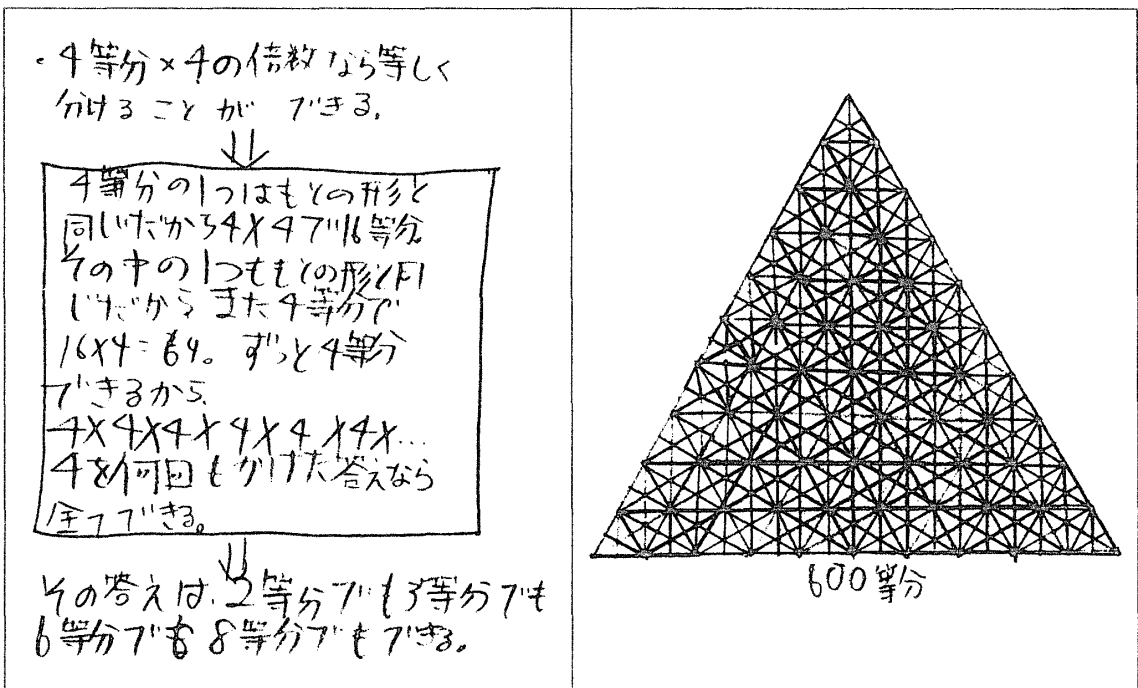 ・4等分×4の倍数なら等しく
分けることができる。
4等分の1つはもとの形と
同じだから4×4で16等分。
その中の1つももとの形と同
じだからまた4等分で
16×4=64。ずっと4等分
できるから、
4×4×4×4×4×4×…
4を何回もかけた答えなら
全てできる。
その答えは、2等分でも3等分でも
6等分でも8等分でもできる。
600等分